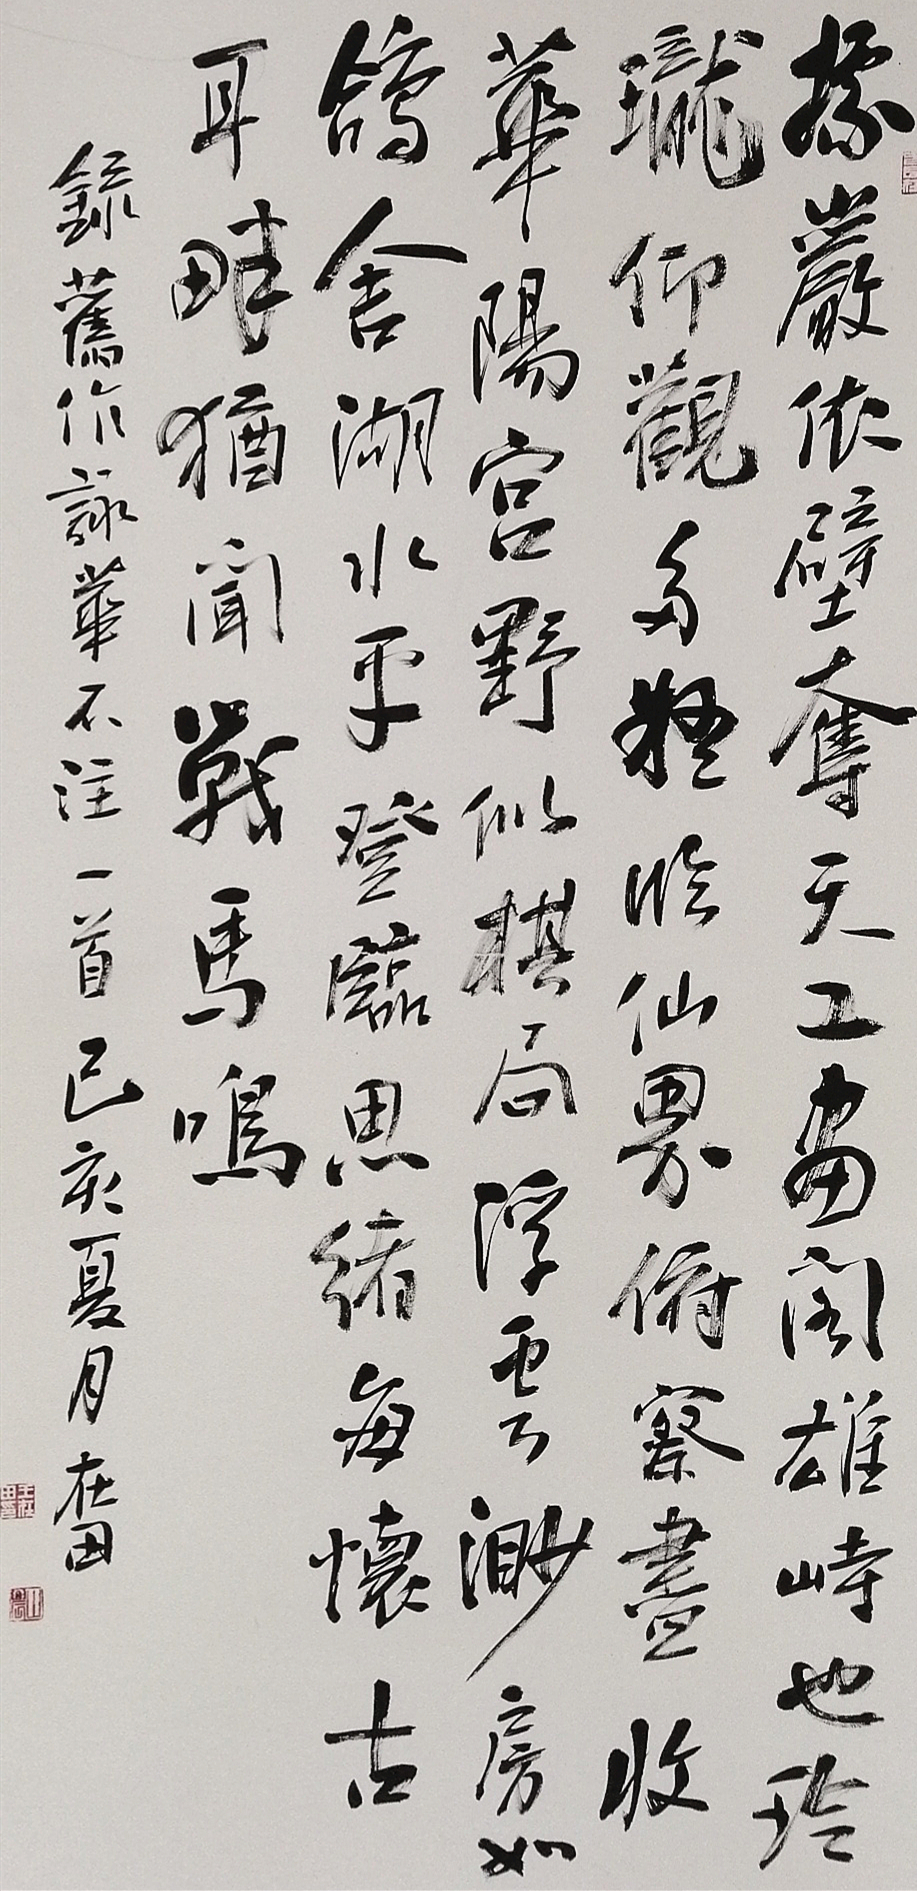 據巖依壁奪天工畫閣雄峙也玲
瓏仰觀多疑臨仙界俯察盡收
華陽宮野似棋局浮雲渺房如
鴿舍湖水平登臨思緒每懷古
耳畔猶聞戰馬鳴
錄舊作詠華不注一首己亥夏月在田